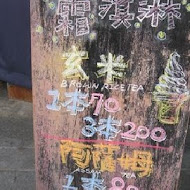 霜淇淋
玄米
BROWN RICE TEA
1本70
3本200
阿薩姆
ASSAM TEA
1本80